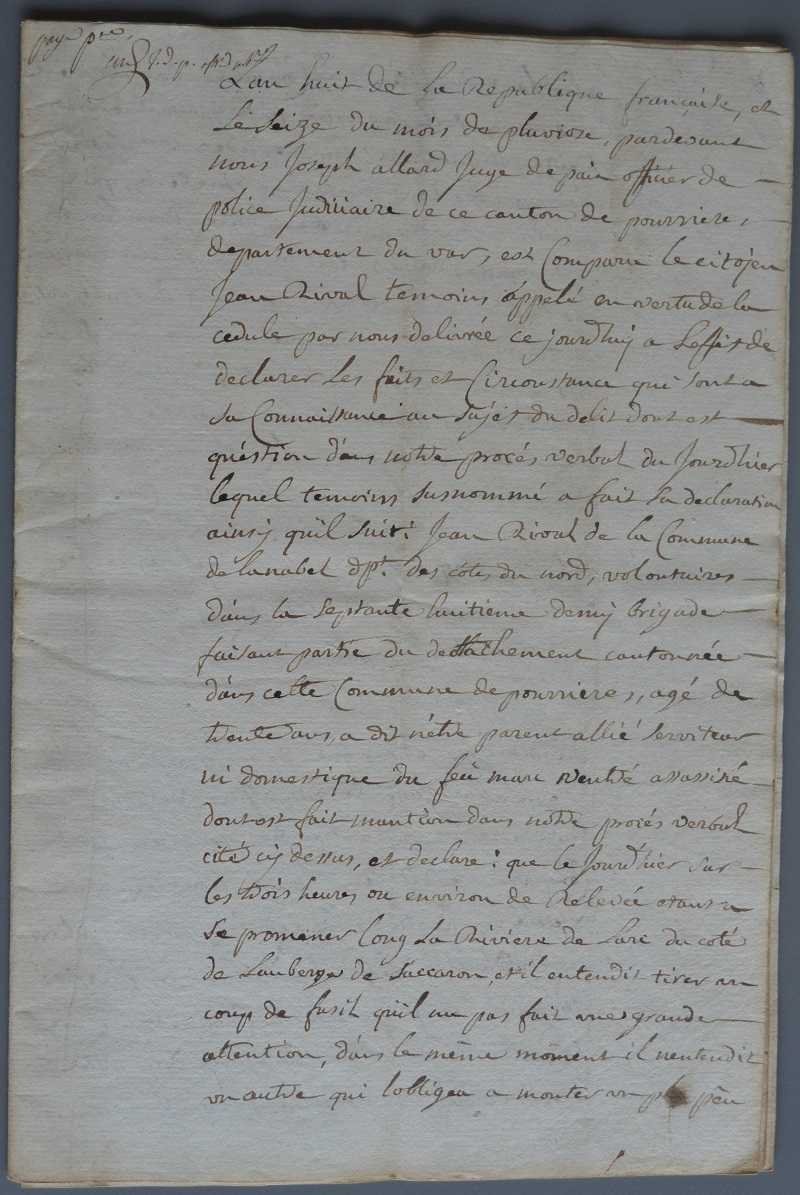 page p.re
L'an huit de la Republique française, et
Le Seize du mois de pluviose, pardevant
nous Joseph allard Juge de paix officier de
police Judiciaire de ce canton de pourriere,
departement du var, est Comparu le citojen
Jean Rival temoins appelé en vertu de la
cedule par nous delivrée ce jourd'huj a Leffet de
declarer Les faits et Circonstance qui sont a
sa Connaissance au sujet du delit dont est
quéstion dans notre procés verbal du Jourd'hier
lequel temoins susnommé a fait sa declaration
ainsj quil suit: Jean Rivoal de la Commune
de lanabel dpt. des côtes du nord, volontaires
dans la Septante huitieme demj brigade
faisant partie du dettachement cantonnée
dans cette Commune de pourrieres, agé de
trente ans, a dit n'étre parent allié serviteur
ni domestique du feu marc assassiné
dont est fait mantion dans notre procés verbal
cité cy dessus, et declare: que le Jourd'hier sur
les trois heures ou environ de Relevée etant a
se promener Long La Riviere de Larc du coté
de Lauberge de Saccaron, et il entendit tirer un
coup de fusil quil na pas fait une grande
attention, dans le même moment il nentendit
un autre qui lobligea a monter un peu